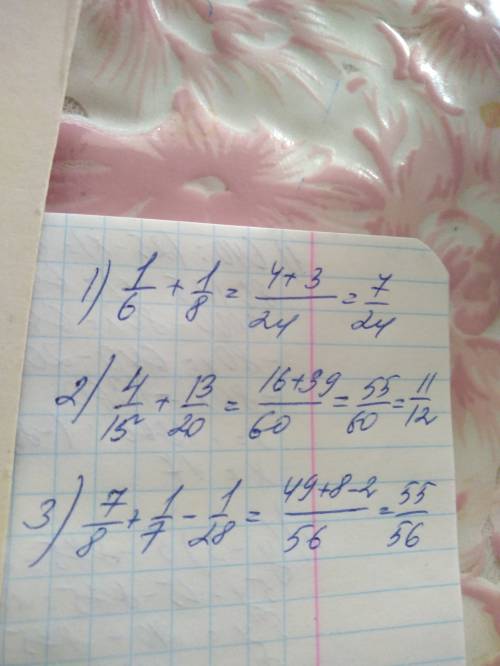 1) 1/6 + 1/8 = (4+3)/24 = 7/24
2) 4/15 + 13/20 = (16+39)/60 = 55/60 = 11/12
3) 7/8 + 1/7 - 1/28 = (49+8-2)/56 = 55/56